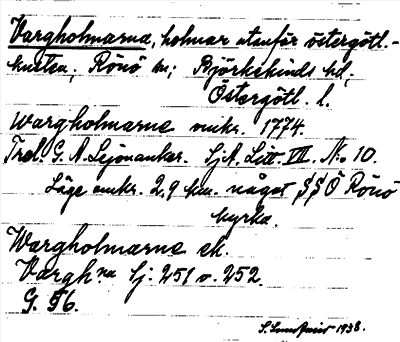 Vargholmarna, holmar utanför östergötl.-
kusten, Rönö sn; Björkekinds hd,
Östergötl. l.
Wargholmarne omkr. 1774.
Trol. G. A. Lejonanker. SjA. Litt. VII. No 10.
Läge omkr. 2,9 km. något SSÖ Rönö
kyrka.
Wargholmarne ek.
Vargh.na Sj: 251 o. 252.
G. 56.
1938.